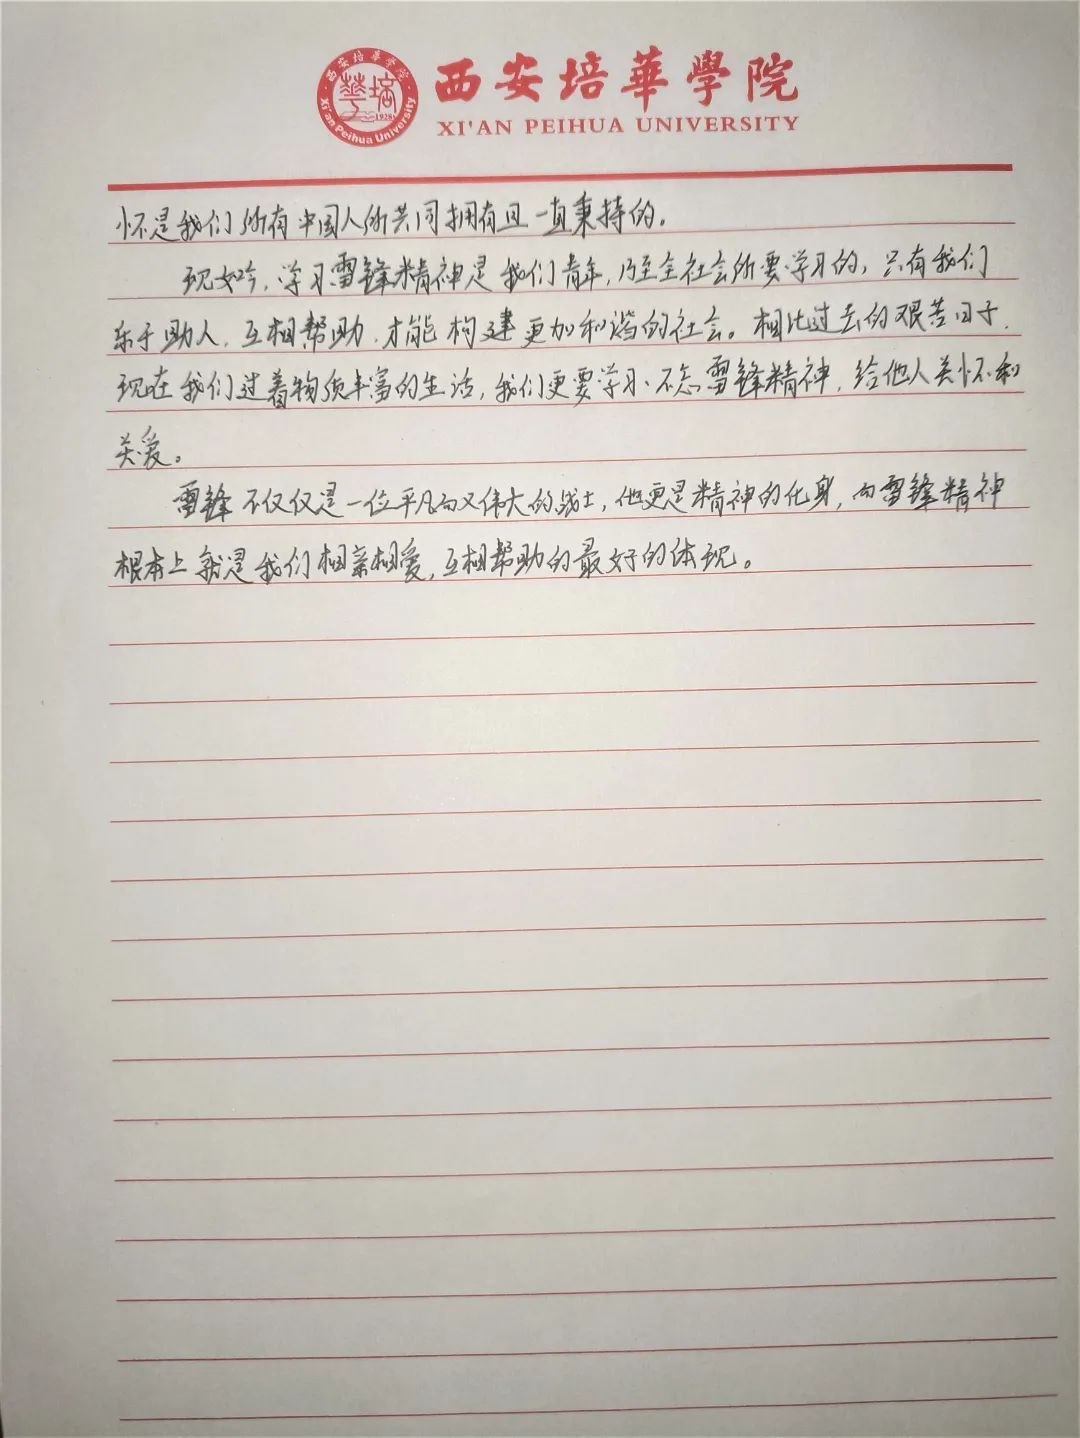 西安培華學院
西安培華學院
華培
1928
Xi'an Peihua University
XI'AN PEIHUA UNIVERSITY
怀是我们所有中国人所共同拥有且一直秉持的。
现如今，学习雷锋精神是我们青年，乃至全社会所要学习的，只有我们
乐于助人，互相帮助，才能构建更加和谐的社会。相比过去的艰苦日子，
现在我们过着物质丰富的生活，我们更要学习、不忘雷锋精神，给他人关怀和
关爱。
雷锋不仅仅是一位平凡而又伟大的战士，他更是精神的化身，向雷锋精神
根本上就是我们相亲相爱，互相帮助的最好的体现。